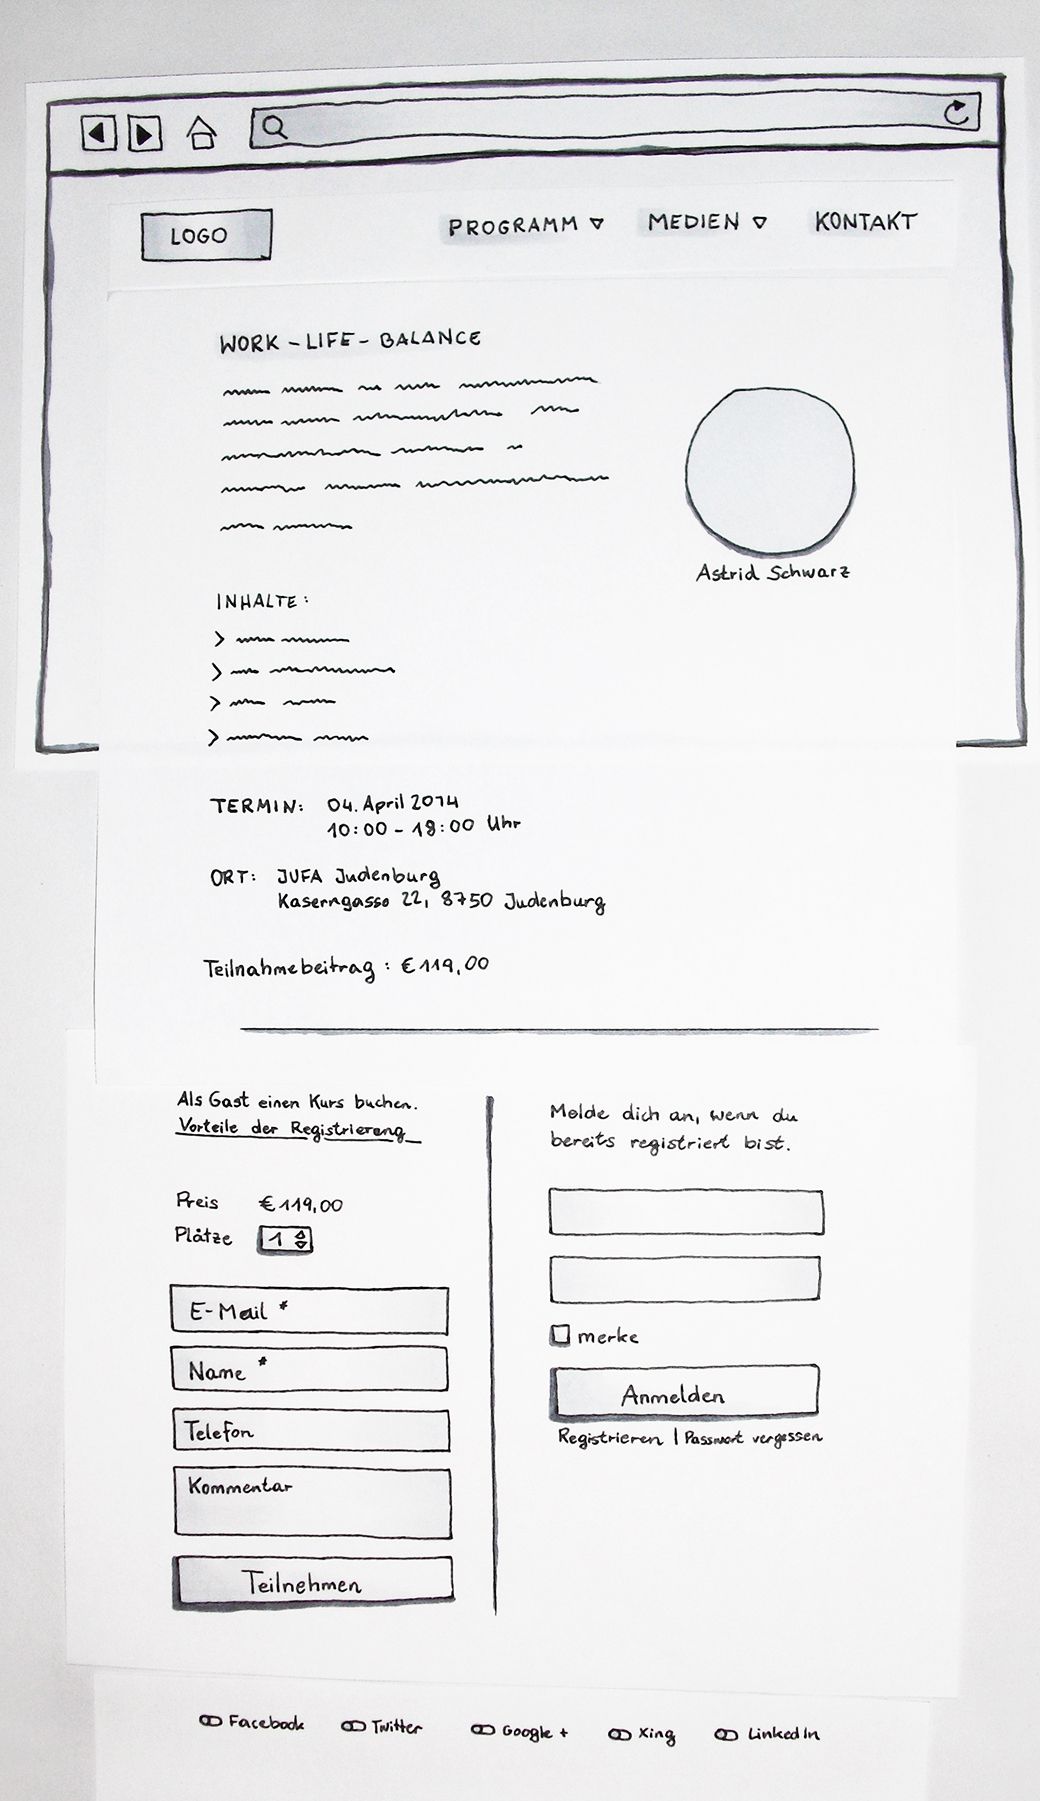 LOGO
PROGRAMM ▽ MEDIEN ▽ KONTAKT
WORK-LIFE-BALANCE
Astrid Schwarz
INHALTE:
TERMIN: 04. April 2014
10:00 - 18:00 Uhr
ORT: JUFA Judenburg
Kaserngasse 22, 8750 Judenburg
Teilnahmebeitrag: €119,00
Als Gast einen Kurs buchen.
Vorteile der Registrierung
Preis €119,00
Plätze 1
E-Mail *
Name *
Telefon
Kommentar
Teilnehmen
Melde dich an, wenn du
bereits registriert bist.
merke
Anmelden
Registrieren | Passwort vergessen
Facebook Twitter Google + Xing LinkedIn